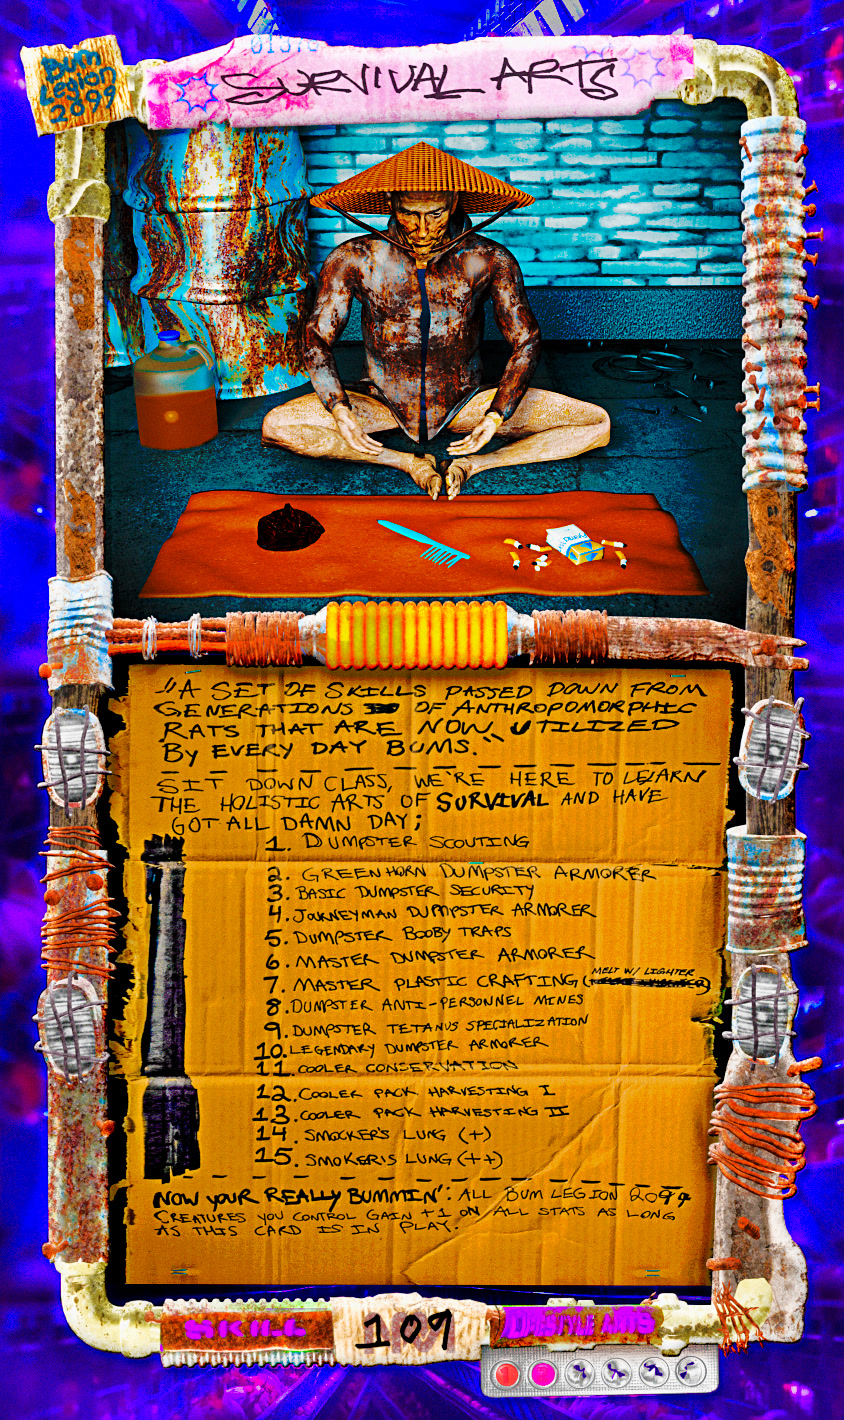 BUM
LEGION
2099
SURVIVAL ARTS
"A SET OF SKILLS PASSED DOWN FROM
GENERATIONS OF ANTHROPOMORPHIC
RATS THAT ARE NOW UTILIZED
BY EVERY DAY BUMS."
SIT DOWN CLASS, WE'RE HERE TO LEARN
THE HOLISTIC ARTS OF SURVIVAL AND HAVE
GOT ALL DAMN DAY;
1. DUMPSTER SCOUTING
2. GREENHORN DUMPSTER ARMORER
3. BASIC DUMPSTER SECURITY
4. JOURNEYMAN DUMPSTER ARMORER
5. DUMPSTER BOOBY TRAPS
6. MASTER DUMPSTER ARMORER
7. MASTER PLASTIC CRAFTING (MELT W/ LIGHTER)
8. DUMPSTER ANTI-PERSONNEL MINES
9. DUMPSTER TETANUS SPECIALIZATION
10. LEGENDARY DUMPSTER ARMORER
11. COOLER CONSERVATION
12. COOLER PACK HARVESTING I
13. COOLER PACK HARVESTING II
14. SMOCKER'S LUNG (+)
15. SMOKER'S LUNG (++)
NOW YOUR REALLY BUMMIN': ALL BUM LEGION 2099
CREATURES YOU CONTROL GAIN +1 ON ALL STATS AS LONG
AS THIS CARD IS IN PLAY.
SKILL
109
LIFESTYLE ARTS